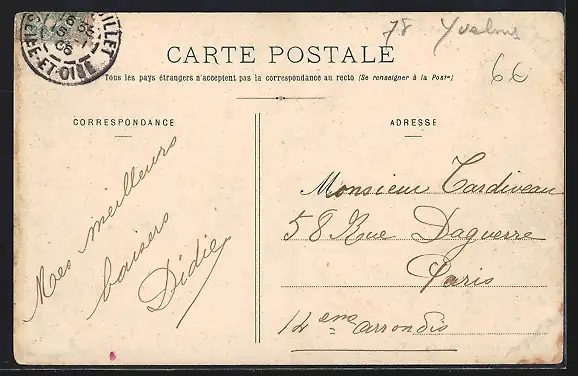 78 Yvelines
6€
SEINE-ET-OISE
CARTE POSTALE
Tous les pays étrangers n'acceptent pas la correspondance au recto (Se renseigner à la Poste)
CORRESPONDANCE
Mes meilleurs
baisers
Didie
ADRESSE
Monsieur Tardiveau
58 Rue Daguerre
Paris
14 eme arrondis